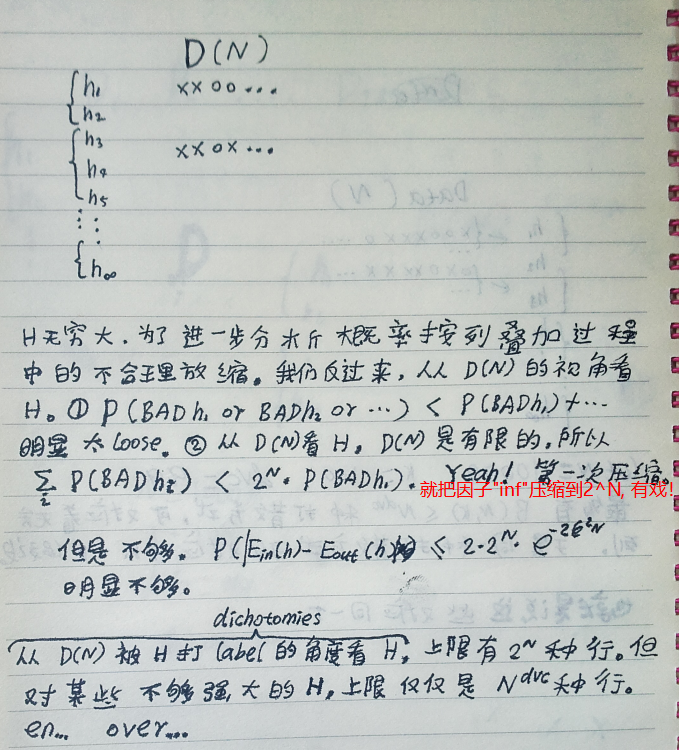 D(N)
h₁ xxoo...
h₂
h₃ xxox...
h₄
h₅
h∞
H无穷大.为了进一步分析概率按列叠加过程
中的不合理放缩。我们反过来,从D(N)的视角看
H。① P(BADh₁ or BADh₂ or …) < P(BADh₁)+…
明显太loose。② 从D(N)看H,D(N)是有限的,所以
∑ᵢ P(BADhᵢ) < 2^N · P(BADh₁). Yeah! 第一次压缩。
就把因子"inf"压缩到2^N, 有戏!
但是不够。 P(|Ein(h)-Eout(h)| ≤ 2·2^N· e^-2ε²N
明显不够。
dichotomies
从D(N)被H打label的角度看H,上限有2^N种行。但
对某些不够强大的H,上限仅仅是N^dvc种行。
en… over…